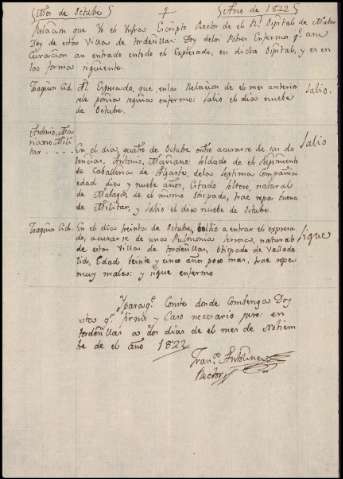 (Mes de Octubre) + (Año de 1822)
Relacion que Yo el Ynfras Cripto Rector de el Rl. Ospital de Mater
Dey de esta Villa de tordesillas Doy delos Pobres Enfermos qe. a su
Curacion an entrado en todo el Expresado, en dicho Ospital, y es en
la forma siguiente
Joaquin Cid. El Espresado, que en la Relacion de el mes anterio
se ponia seguia enfermo: salio el dia nuebe
de Octubre.
Salio.
Antonio Ma
riano Mili
tar
En el dia, quatro de Octubre entro acurarse de sar
tencias, Antonio, Mariano soldado de el Regimiento
de Caballeria de Algarbe, dela septima Compañia
edad diez y nuebe años, Estado soltero, natural
de Malaga, de el mismo Obispado, trae ropa buena
de Militar, y salio el dia nuebe de Octubre.
Salio
Joaquin Cid. En el dia treinta de Octubre, bolbio a entrar el expresa
do, acurarse de una Pulmonia, natural
de esta Villa de tordesillas, Obispado de Vallado
lid, Edad treinta y unco años poco mas, trae ropa
muy mala: y sigue enfermo
sigue
Y paraqe. Conste donde Conbenga Doy
esta qe. firmo y Caso necesario juro: en
tordesillas a dos dias de el mes de Nobiem
bre de el año 1822
Franco. Antolinez
Rector